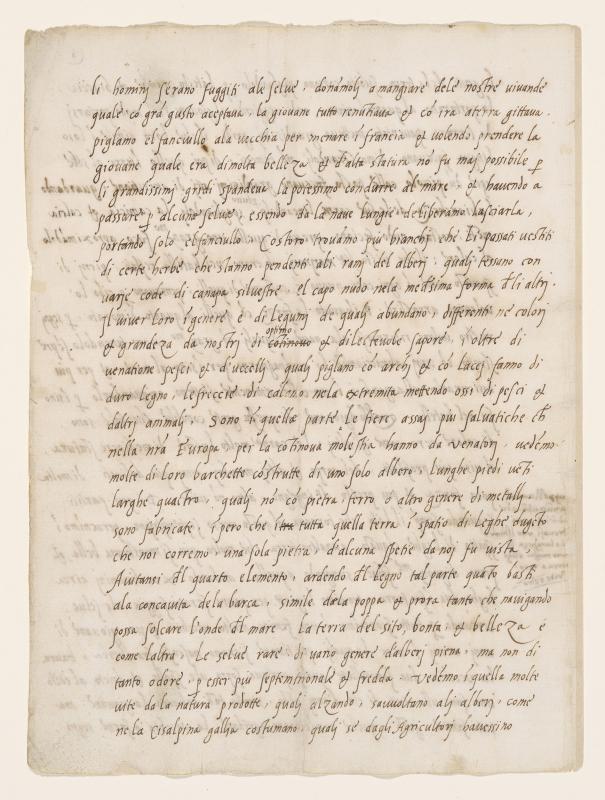 li hominj serano fuggiti ale selve, donãmolj a mangiare dele nostre vivande
quale cõ grã gusto aceptava, la giovane tutto renutiava & cõ ira aterra gittava.
pigliamo el fanciullo ala vecchia per menare ĩ francia & volendo prendere la
giovane quale era di molta bellezza & d'alta statura no fu maj possibile ꝑ
li grandissimj gridi spandeva la potessimo condurre al mare, & havendo a
passare ꝑ alcune selve, essendo da la nave lungie deliberãmo lasciarla,
portando solo el fanciullo. Costoro trovãmo più bianchj che li passati vestiti
di certe herbe che stanno pendenti ali ramj del alberj, quali tessano con
varie code di canapa silvestre, el capo nudo nela medesima forma đli altrj.
Il viver loro ĩ genere è di legumj de qualj abundano, differenti ne colorj
& grandeza da nostrj di optimo cõtinovo & dilectevole sapore, ĩ oltre di
venatione pesci & d'ucellj qualj pigliano cõ archj & cõ laccj fanno di
duro legno, le freccie di calamo nela extremita mettendo ossi di pesci &
d'altri animalj. Sono ĩ quella parte le fiere assaj più salvatiche ch̃
nella nr̃a Europa, per la cõtinova molestia hanno da venatorj. vedẽmo
molte di loro barchette cõstrutte di uno solo albero, lunghe piedi vẽti
larghe quattro, qualj nõ cõ pietra ferro ò altro genere di metallj
sono fabricate, ĩ pero che ĩtra tutta quella terra ĩ spatio di leghe dugẽto
che noi corremo, una sola pietra, d'alcuna spetie da noj fu vista,
Aiutansi đl quarto elemento, ardendo đl legno tal parte quãto basti
ala concavita dela barca, simile dela poppa & prora tanto che navigando
possa solcare l'onde đl mare. La terra del sito, bontà, & bellezza è
come laltra. Le selve rare di vario genere d'alberj piena, ma non di
tanto odore, ꝑ esser più septemtrionale & fredda. Vedẽmo ĩ quella molte
vite da la natura prodotte, qualj alzando, s'avvoltano alj alberj, come
ne la Cisalpina gallia costumano, qualj se dagli Agricultorj havessino